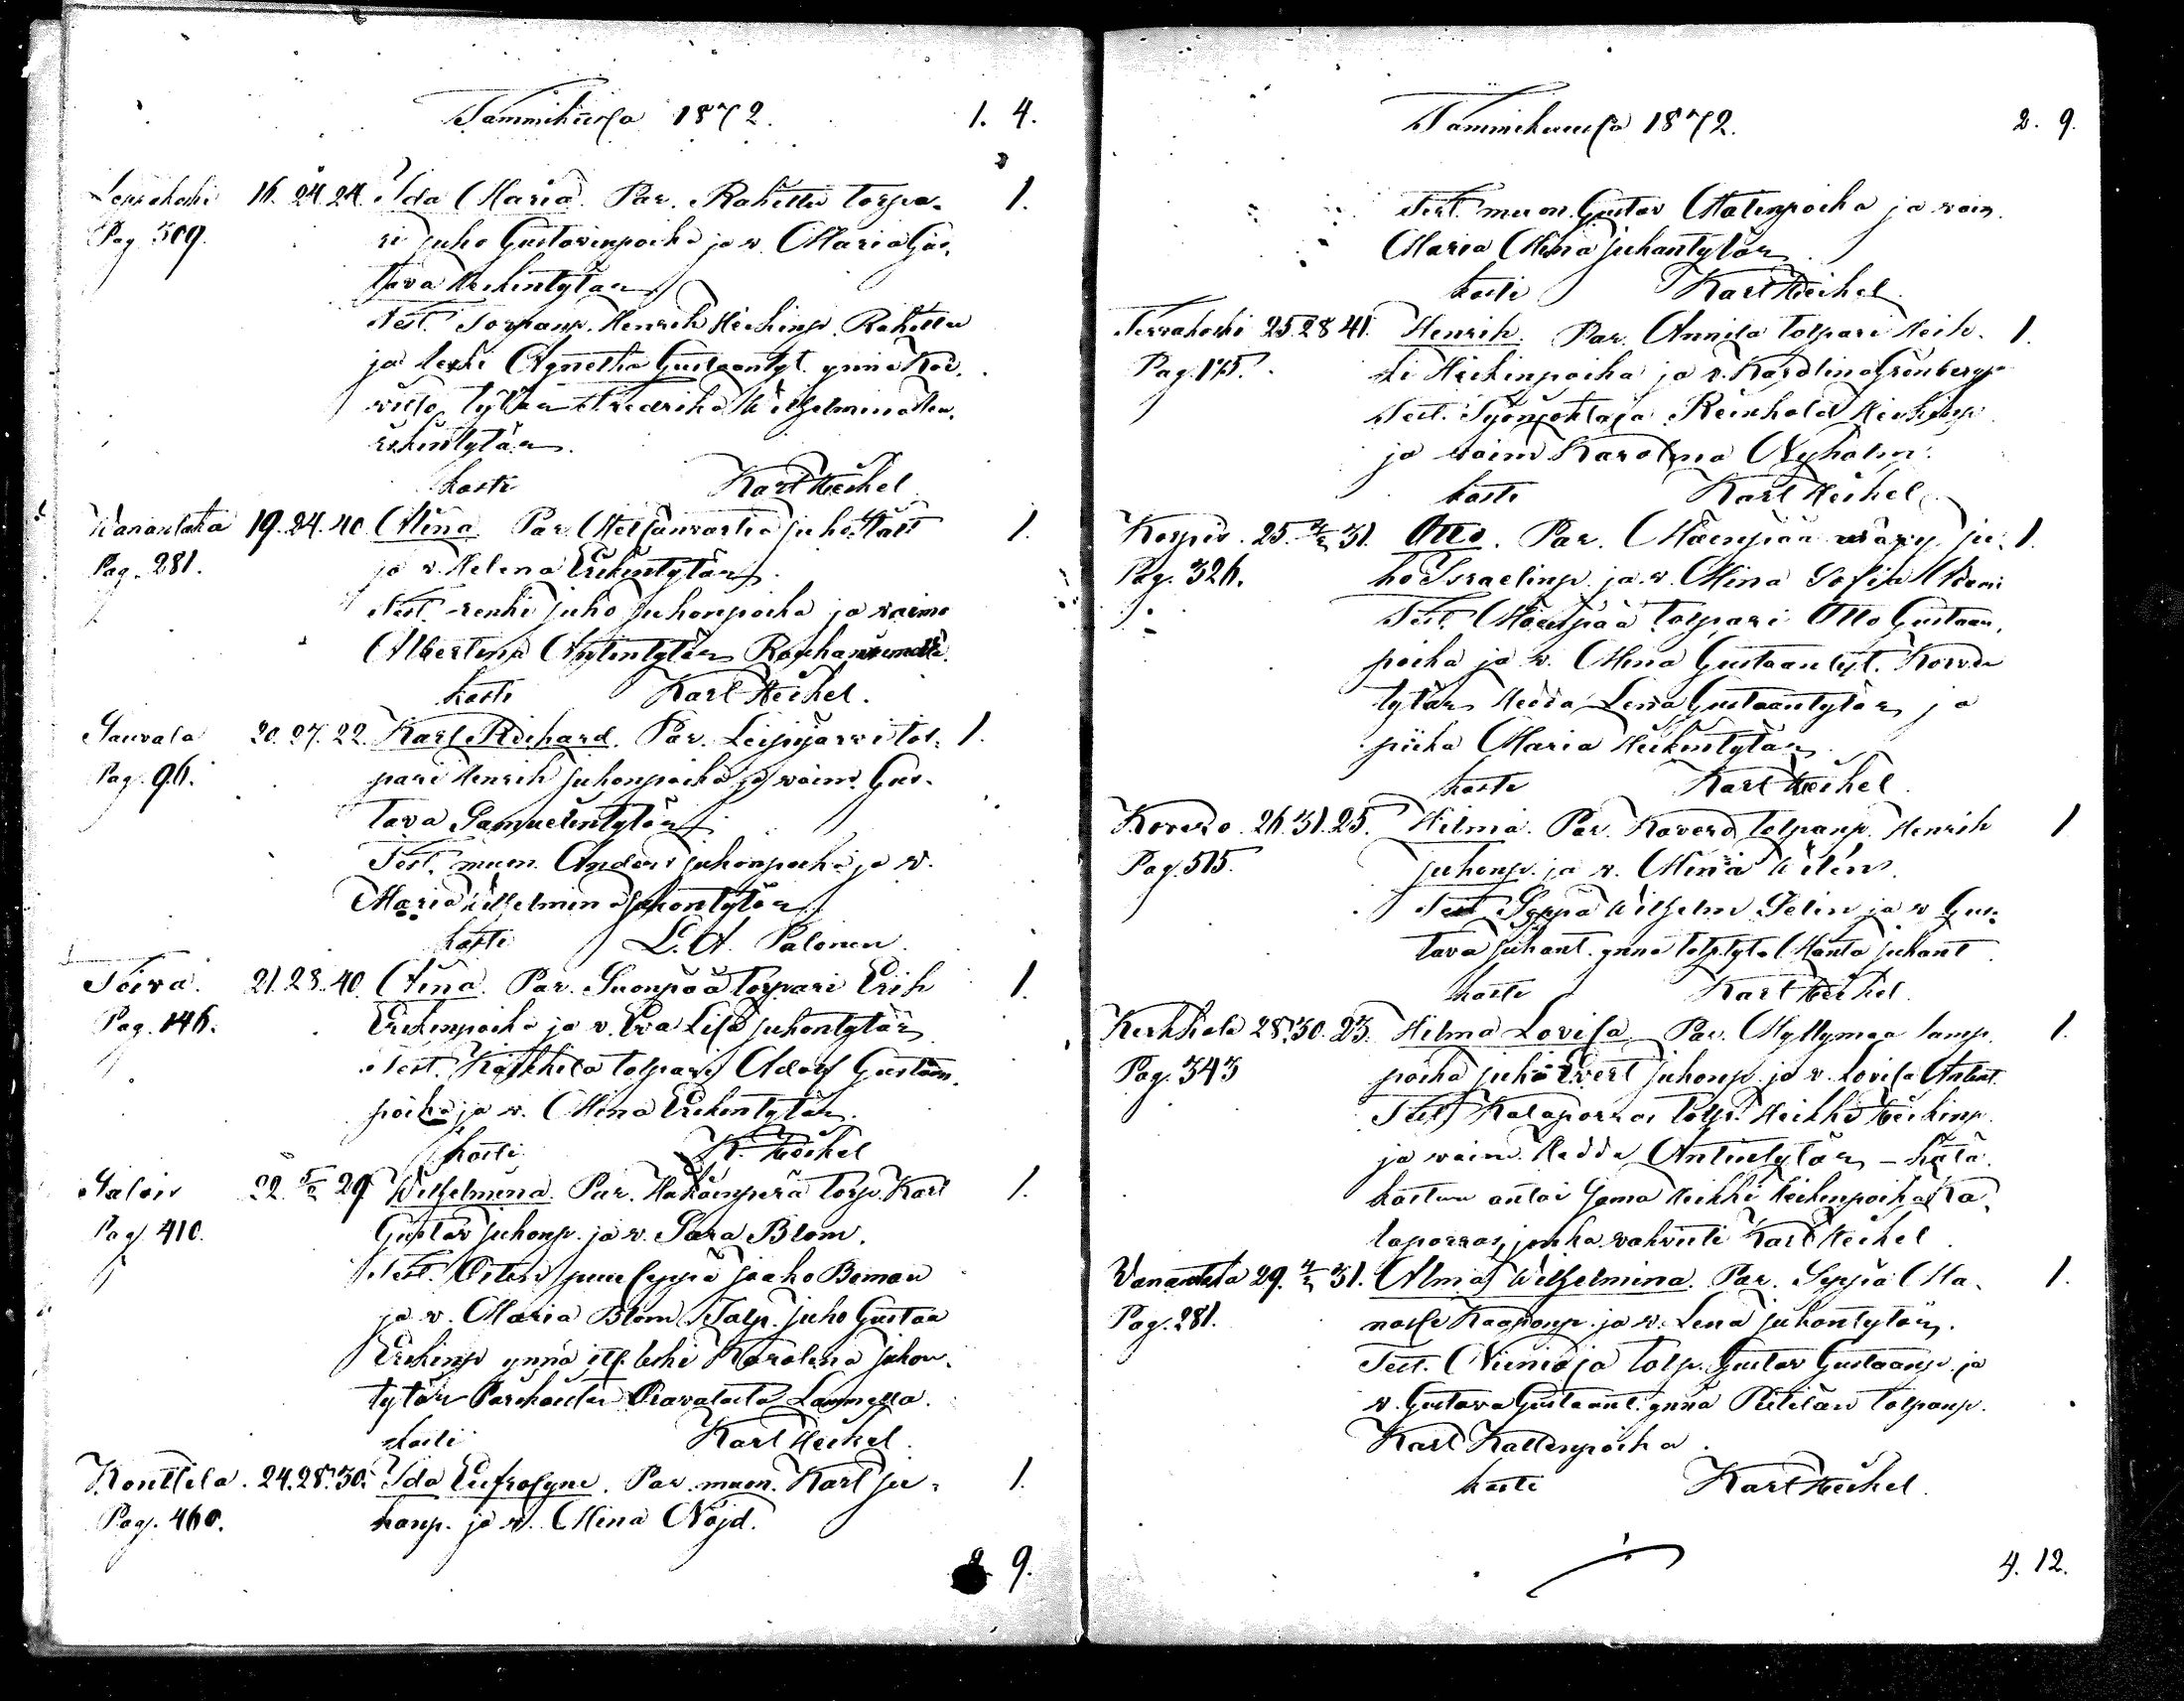 Tammikuusa 1872. 1. 4.
Leppäkoski 16. 24. 24. Ida Maria. Par. Rahittu torpa- 1.
Pag. 309. ri Juho Gustavinpoika ja v. Maria Gus-
tava Heikintytär
Test. Torpanp. Henrik Heikinp. Rahittu
ja leski Agnetha Gustaantyt. ynnä
tytär Fredrika Wilhelmina Hen-
rikintytär.
kasti Karl Heikel
Wanantaka 19. 24. 40. Mina. Par. Metsänvartia Juho Fält 1.
Pag. 281. ja v. Helena Erikintytär.
Test. renki Juho Juhonpoika ja vaimo
Albertina Antintytär
kasti Karl Heikel.
Sauvala 20. 27. 22. Karl Richard. Par. Leipijärvi tol- 1.
Pag. 96. pari Henrik Juhonpoika ja vaimo Gus-
tava Samuelintytär
Test. muon. Anders Juhonpoika ja v.
Maria Wilhelmina Juhontytär
kasti L. A. Palonen
Toiva. 21. 23. 40. Mina. Par. Suonpää Torpari Erik 1.
Pag. 146. Erikinpoika ja v. Eva Lisa Juhontytär
Test. tolpari Adolf Gustaan-
poika ja v. Mina Erikintytär.
kasti K. Heikel
22. 5/2 29 Wilhelmina. Par. Hakaenperä Torp. Karl 1.
Pag. 410. Gustav Juhonp. ja v. Sara Blom.
Test. puuseppä Jaako Boman
ja v. Maria Blom, Talp. Juho Gustaa
Erikinp ynnä its. leski Karolina Juhon-
tytär Lammella.
kasti Karl Heikel.
Konttila. 24. 28. 30. Ida Eufrosyne. Par. muon. Karl Ju- 1.
Pag. 460. honp. ja v. Mina Nöjd.
2 9.
Tammikuusa 1872. 2. 9.
Test. muon. Gustav Matinpoika ja vaim.
Maria Mina Juhantytär
kasti Karl Heikel
Terrakoski 25. 28. 41. Henrik. Par. Annila tolpari Heik- 1.
Pag. 175. ki Heikinpoika ja v. Karolina Grönberg
Test. Työnjohtaja Reinhold Heikinp
ja vaimo Karolina Nyholm.
kasti Karl Heikel
Korpis. 25. 4/2 31. Otto. Par. Mäenpää vävy Ju- 1.
Pag. 326. ho Israelinp. ja v. Mina Sofia
Test. Mäenpää tolpari Otto Gustaan-
poika ja v. Mina Gustaantyt.
tytär Hedda Lena Gustaantytär ja
piika Maria Heikintytär
kasti Karl Heikel.
Kovero. 26. 31. 25. Hilma. Par. Kovero tolpanp. Henrik 1
Pag. 515. Juhonp. ja v. Mina Wilen.
Test. Seppä Wilhelm Selin ja v. Gus-
tava Juhant. ynnä tolp.tyt. Manta Juhant
kasti Karl Heikel.
Kerkkola 28. 30. 23. Hilma Lovisa. Par. Myllymaa lamp. 1.
Pag. 343 poika Juho Evert Juhonp. ja v. Lovisa Antint.
Test. Kalaporras Tolp. Heikki Heikinp
ja vaimo Hedda Antintytär – hätä
kasteen antoi sama Heikki Heikinpoika Ka-
laporras, jonka vahvisti Karl Heikel
Wanantaka 29. 4/2 31. Alma Wilhelmina. Par. Seppä Ma- 1.
Pag. 281. nasse Kaaponp. ja v. Lena Juhontytär.
Test. Nienioja Tolp. Gustav Gustaanp. ja
v. Gustava Gustaant. ynnä Pietilän tolpanp.
Karl Kallenpoika.
kasti Karl Heikel.
4. 12.